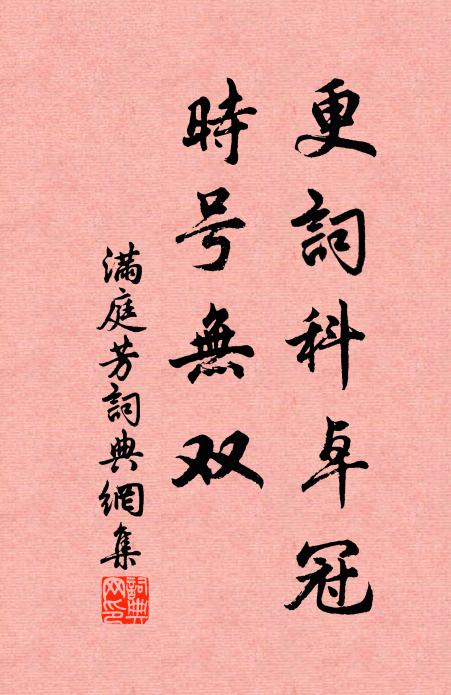 更詞科卓冠
時号無双
滿庭芳詞典網集
詞典网印